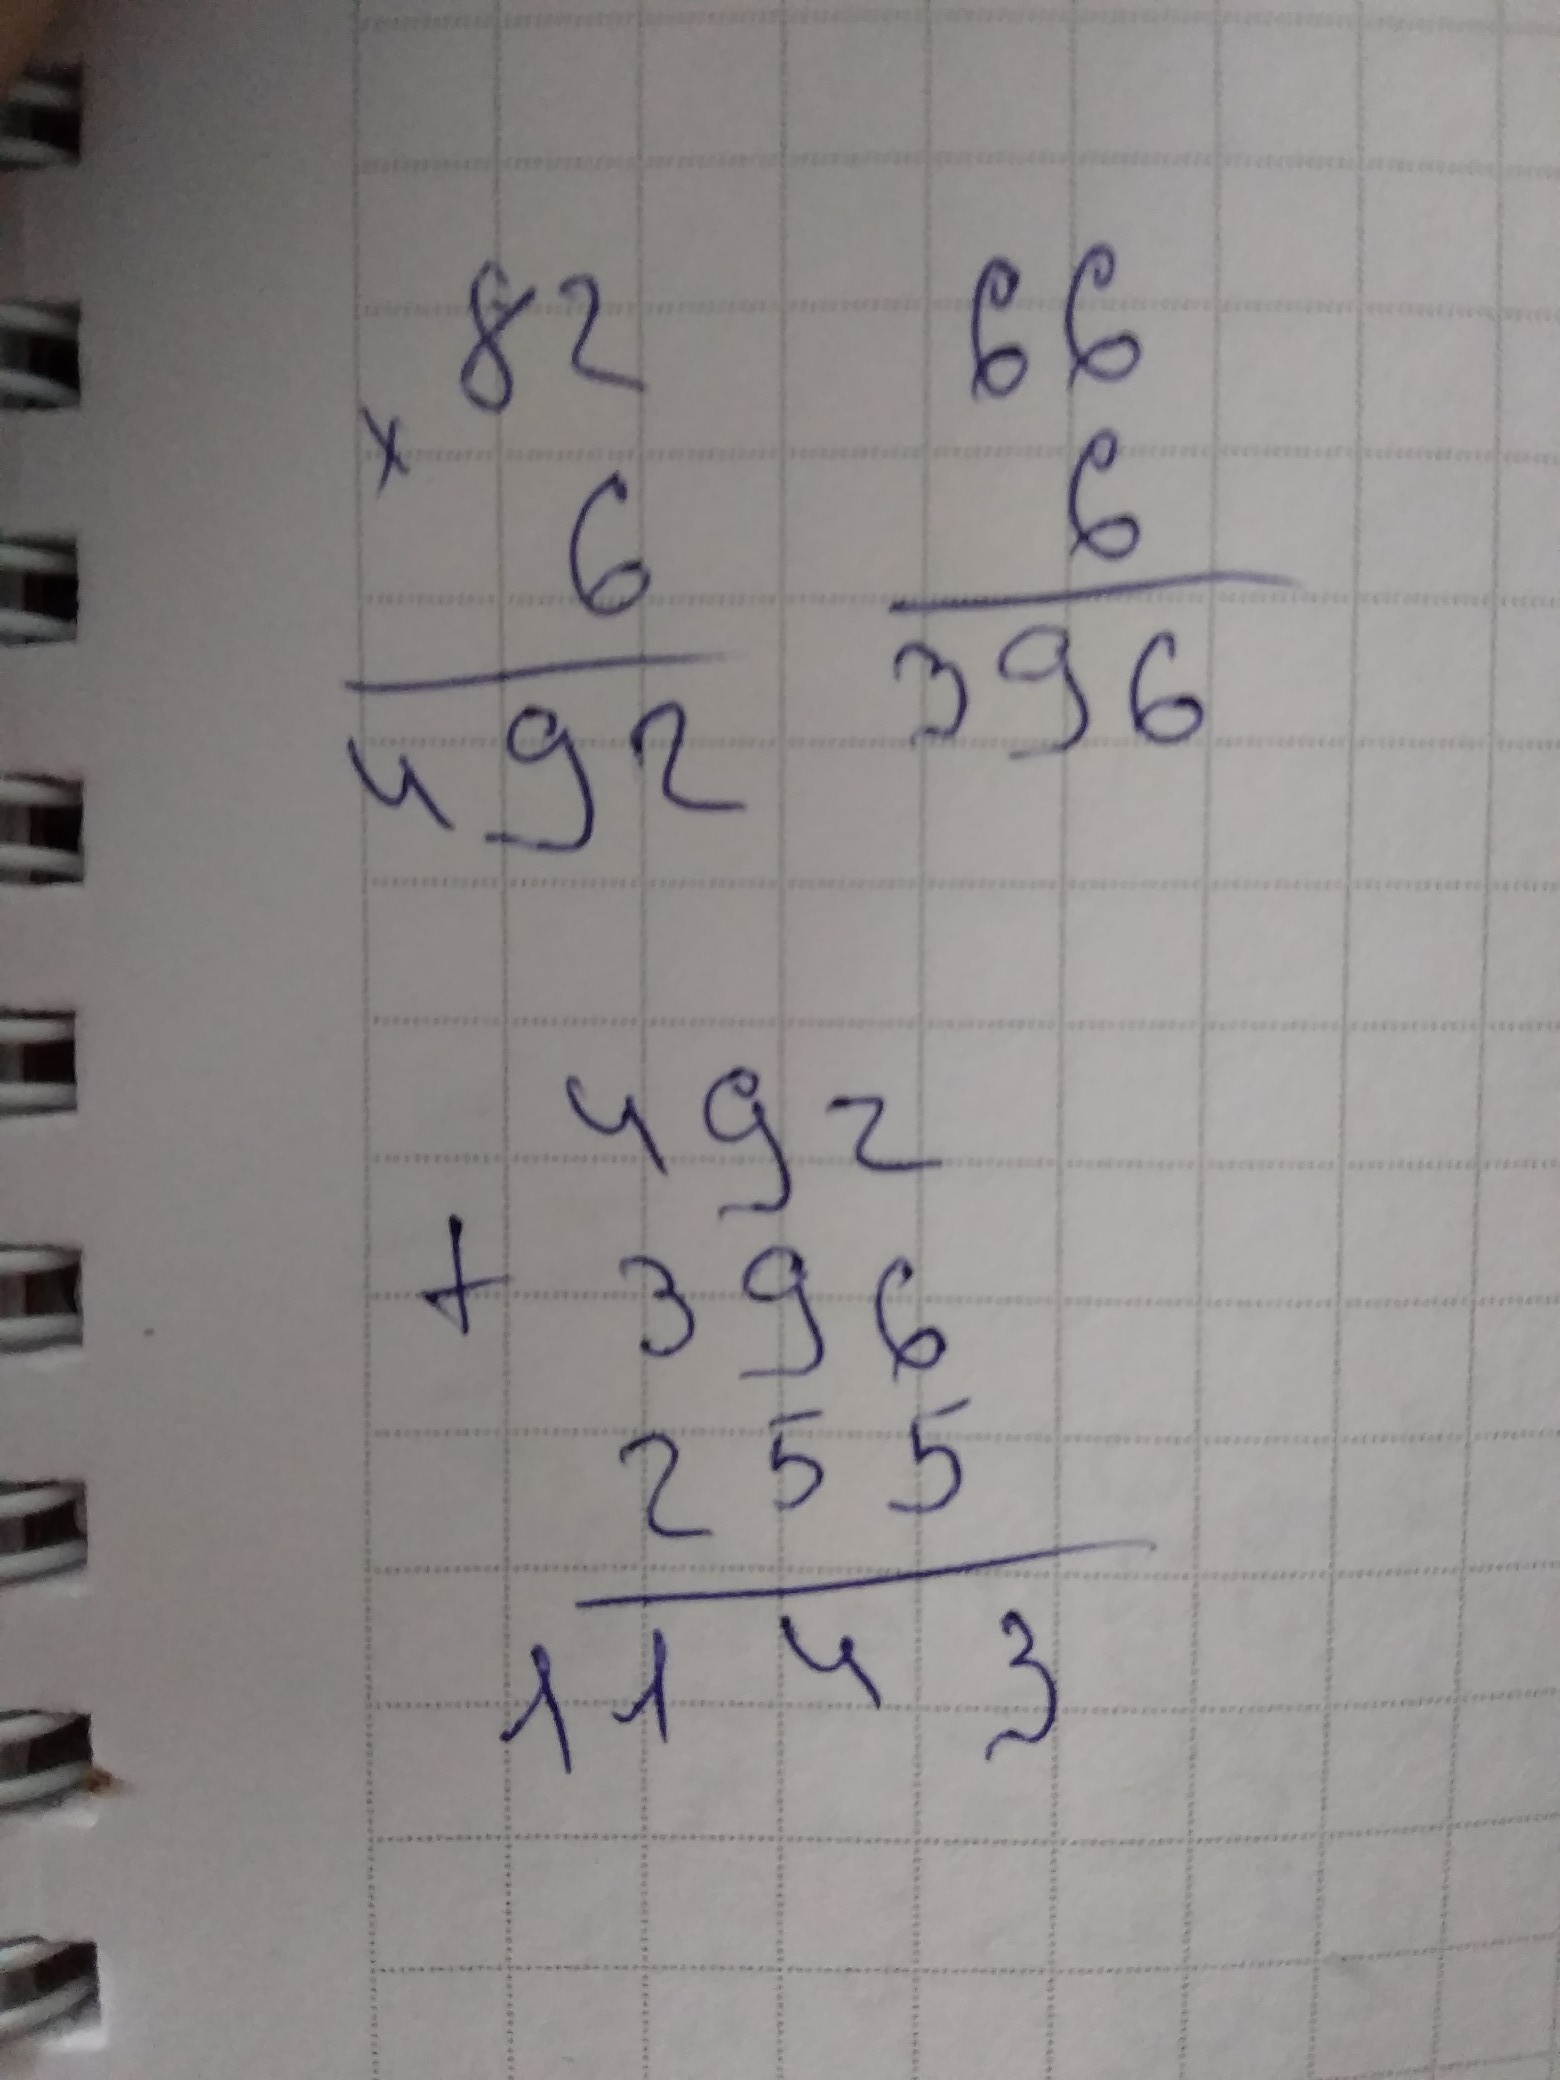 82
x
6
492
66
6
396
492
+ 396
255
1143